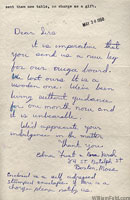 sent them one table, no charge as a gift.
MAY 26 1950
Dear Sirs
It is imperative that
you send us a new leg
for our ouija board.
We lost ours. It is a
wooden one. We've been
living without guidance
for one month now and
it is unbearable.
We'd appreciate your
indulgence in the matter
Thank you
Edna
St
Boston, Mass.
Enclosed is a self addressed
stamped envelope if there is a
charge please notify us.
WilliamFuld.com